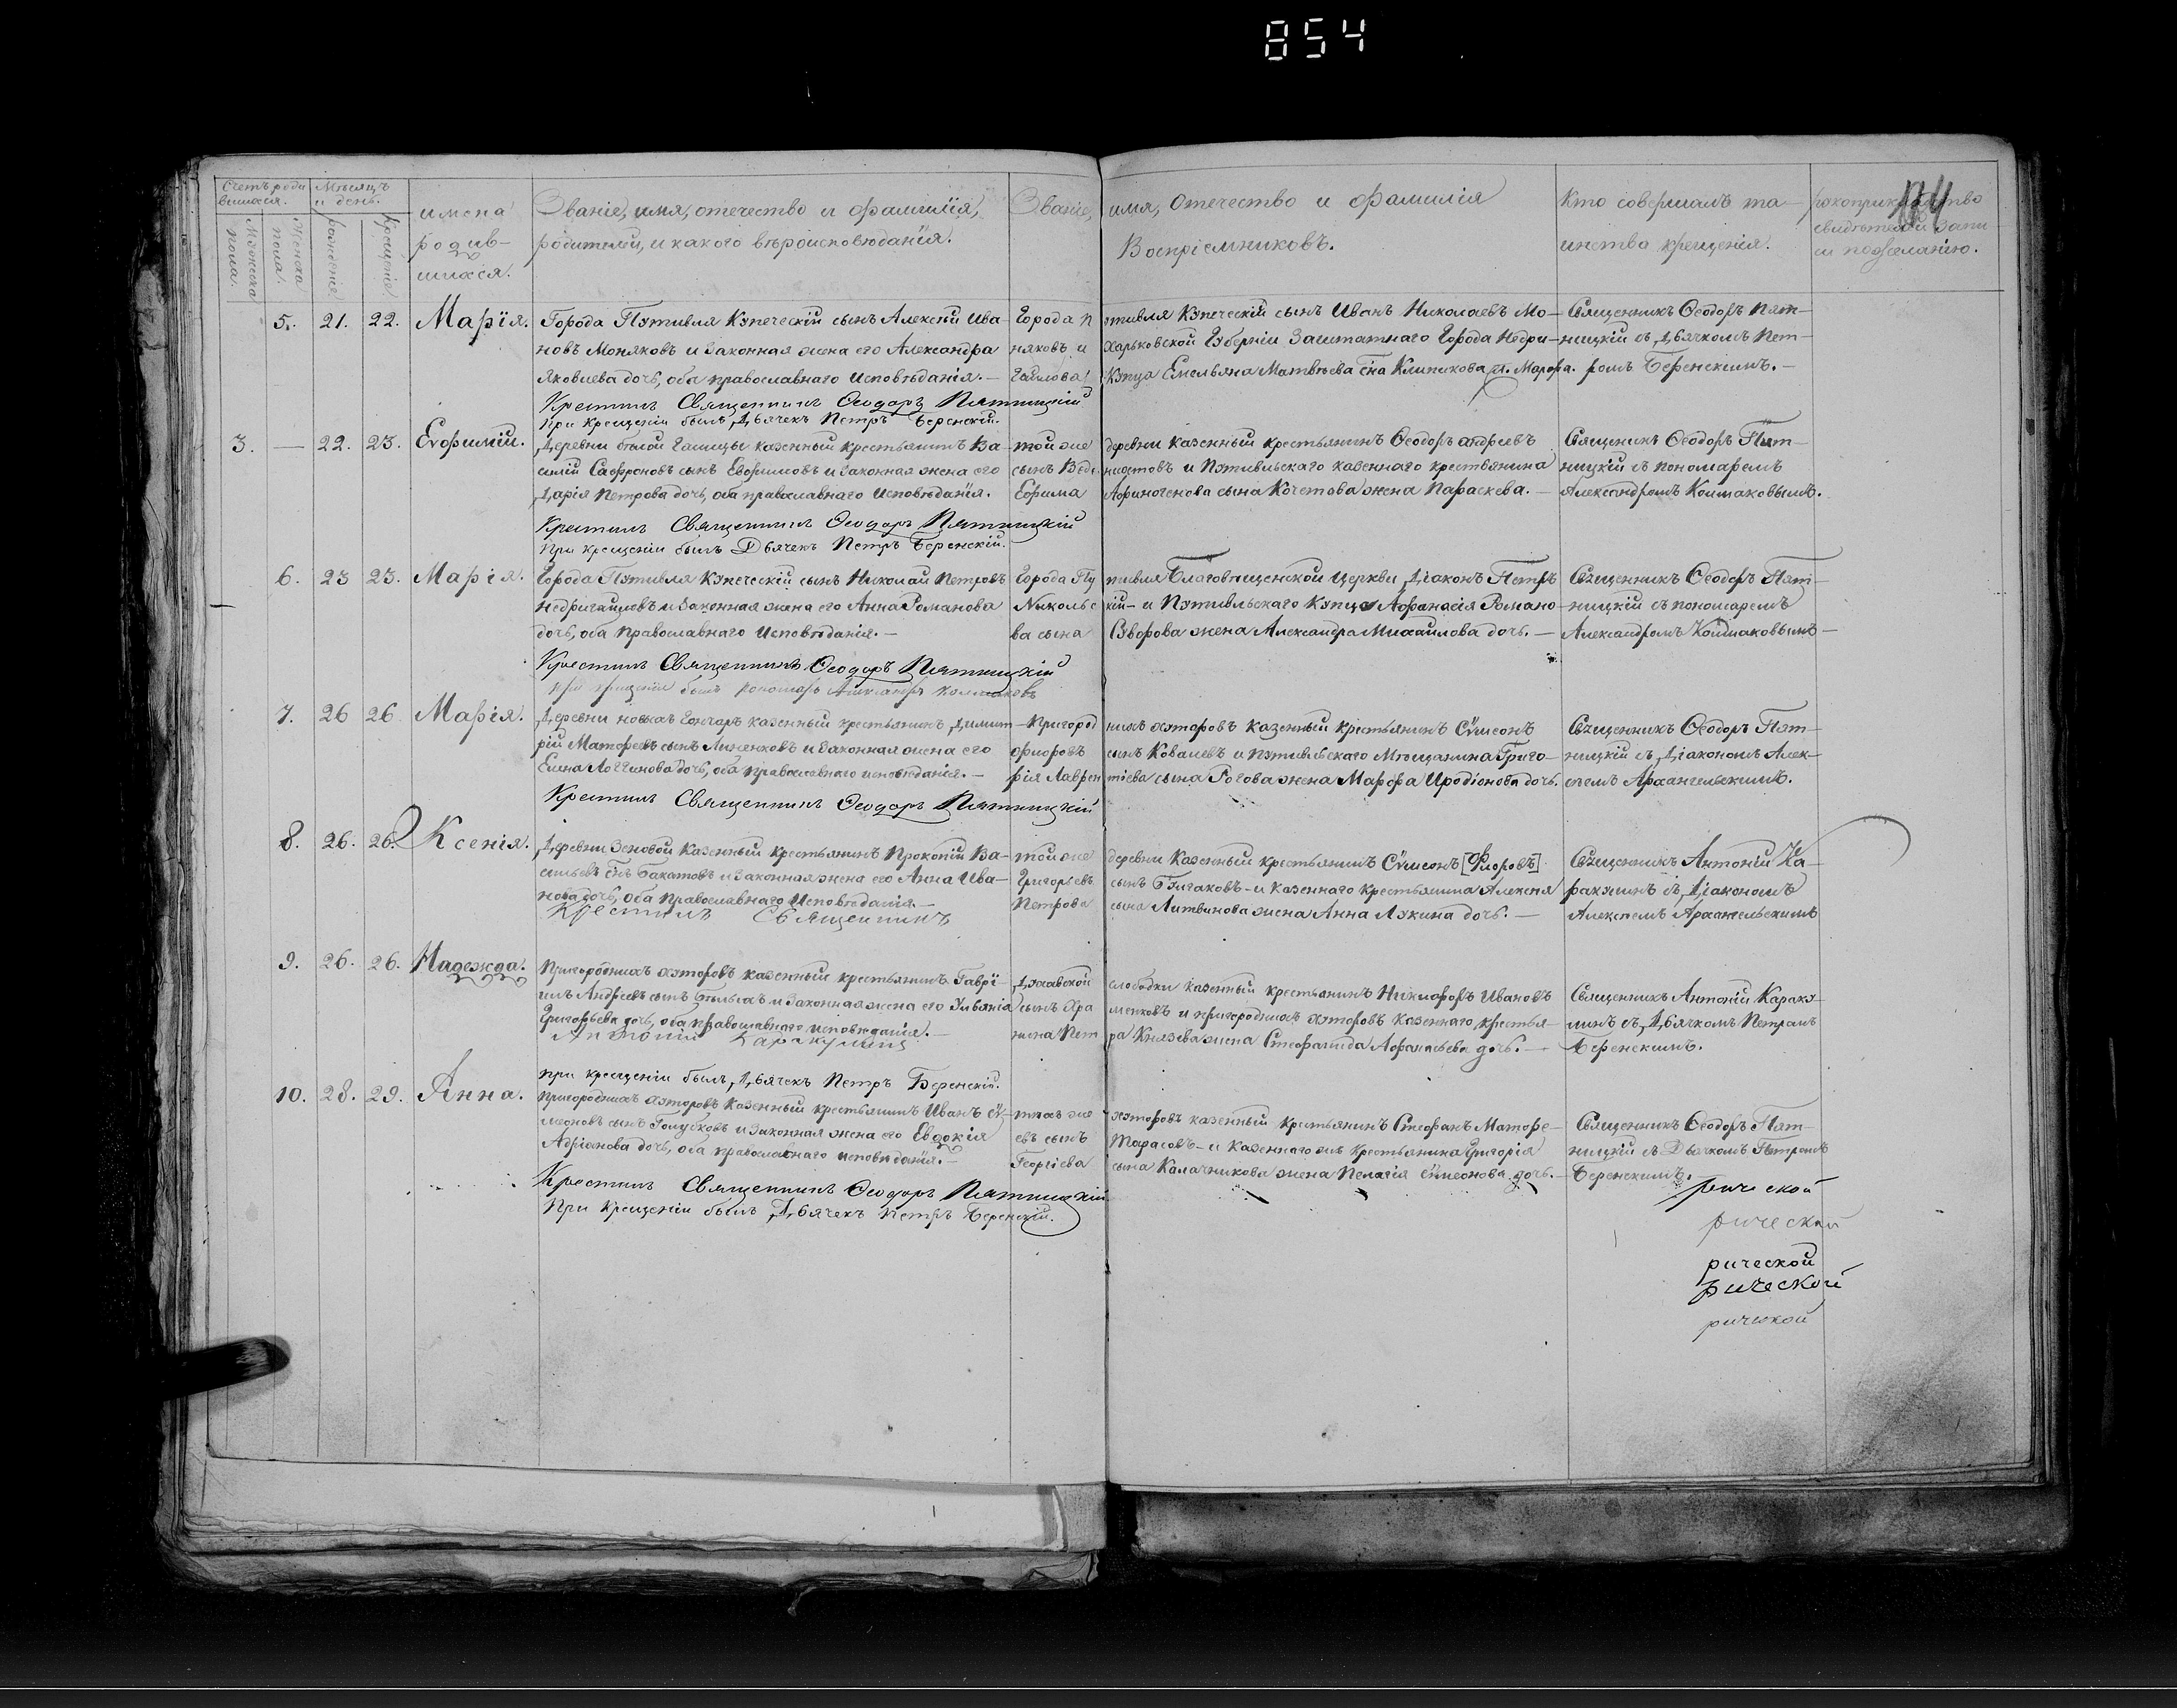 854
Счетъ роди
вшихся.
Мѣсяцъ
и день.
Мужеска
пола.
Женска
пола.
рожденіе
крещеніе
имена
родив-
шихся.
Званіе, имя, отечество и фамилія,
родителей, и какого вѣроисповѣданія.
Званіе, имя, отечество и фамилія
Воспріемниковъ.
Кто совершалъ та-
инство крещенія.
рукоприкладство
свидѣтелей запи
си по желанію.
5. 21. 22. Марія.
Города Путивля Купеческій сынъ Алексѣй Ива-
новъ Моняковъ и законная жена его Александра
Яковлева дочь, оба православнаго исповѣданія.-
Города Путивля Купеческій сынъ Иванъ Николаевъ Мо-
няковъ и Харьковской Губерніи Заштатнаго Города Недри-
гайлова Купца Емельяна Матвѣева сна Климикова ж. Марфа.
Священникъ Ѳеодоръ Пят-
ницкій съ Дьячкомъ Пет-
ромъ Беренскимъ.-
Крестилъ Священникъ Ѳеодоръ Пятницкій
При крещеніи былъ Дьячекъ Петръ Беренскій.
3. — 22. 23. Евфимій.
Деревни бѣлой Галицы казенный крестьянинъ Ва-
силій Сафроновъ сынъ Евфимовъ и законная жена его
Дарія Петрова дочь, оба православнаго исповѣданія.
той же деревни казенный крестьянинъ Ѳеодоръ Андреевъ
сынъ
и Путивльскаго казеннаго крестьянина
Ефима Афиногенова сына Кочетова жена Параскева.-
Священникъ Ѳеодоръ Пят-
ницкій съ пономаремъ
Александромъ Колмаковымъ.
Крестилъ Священникъ Ѳеодоръ Пятницкій
При крещеніи былъ Дьячекъ Петръ Беренскій.
6. 23 23. Марія.
Города Путивля Купеческій сынъ Николай Петровъ
Недригайловъ и законная жена его Анна Романова
дочь, оба Православнаго Исповѣданія.-
Города Путивля Благовѣщенской церкви Діаконъ Петръ
Никольскій- и Путивльскаго Купца Афанасія Романо-
ва сына Взворова жена Александра Михайлова дочь.-
Священникъ Ѳеодоръ Пят-
ницкій съ пономаремъ
Александромъ Колмаковымъ-
Крестилъ Священникъ Ѳеодоръ Пятницкій
при крещеніи былъ пономарь Александръ Колмаковъ
7. 26 26 Марія.
Деревни новыхъ Гончаръ казенный крестьянинъ Димит-
рій Матфеевъ сынъ Линенковъ и законная жена его
Елена Логгинова дочь, оба православнаго исповѣданія.-
Пригороднихъ хуторовъ казенный крестьянинъ Сѵмеонъ
Флоровъ сынъ Ковалевъ и Путивльскаго Мѣщанина Григо-
рія Лаврентіева сына Рогова жена Марфа Иродіонова дочь.
Священникъ Ѳеодоръ Пят-
ницкій съ Діакономъ Алек-
сѣемъ Архангельскимъ.
Крестилъ Священникъ Ѳеодоръ Пятницкій
8. 26. 26. Ксенія.
Деревни Зеновой Казенный крестьянинъ Прокопій Ва-
сильевъ снъ Бакатовъ и законная жена его Анна Ива-
нова дочь, оба Православнаго Исповѣданія.-
той же деревни Казенный крестьянинъ Сѵмеонъ [Флоровъ]
Григорьевъ сынъ Бугаковъ- и казеннаго крестьянина Алексея
Петрова сына Литвинова жена Анна Лукина дочь.-
Священникъ Антоній Ка-
ракулинъ съ Діакономъ
Алексѣемъ Архангельскимъ
Крестилъ Священникъ
9. 26. 26. Надежда.
Пригороднихъ хуторовъ казенный крестьянинъ Гаврі-
илъ Андреевъ сынъ Бѣлыхъ и законная жена его Ульянія
Григорьева дочь, оба православнаго исповѣданія.-
слободки казенный крестьянинъ Никифоръ Ивановъ
сынъ Храменковъ и пригороднихъ хуторовъ казеннаго крестья-
нина Петра Князева жена Стефанида Афанасьева дочь.-
Священникъ Антоній Караку-
линъ съ Дьячкомъ Петромъ
Беренскимъ.
Антоній Каракулинъ
при крещеніи былъ Дьячекъ Петръ Беренскій.
10. 28. 29. Анна.
Пригороднихъ хуторовъ казенный крестьянинъ Иванъ Сѵ-
меоновъ сынъ Голубковъ и законная жена его Евдокія
Адріанова дочь, оба православнаго исповѣданія.-
тѣхъ же хуторовъ казенный крестьянинъ Стефанъ Матфе-
евъ сынъ Тарасовъ- и казеннаго жъ крестьянина Григорія
Георгіева сына Калачникова жена Пелагія Сѵмеонова дочь.-
Священникъ Ѳеодоръ Пят-
ницкій съ Дьячкомъ Петромъ
Беренскимъ.
Крестилъ Священникъ Ѳеодоръ Пятницкій
При крещеніи былъ Дьячекъ Петръ Беренскій.
рической
рической
рической
рической
рической